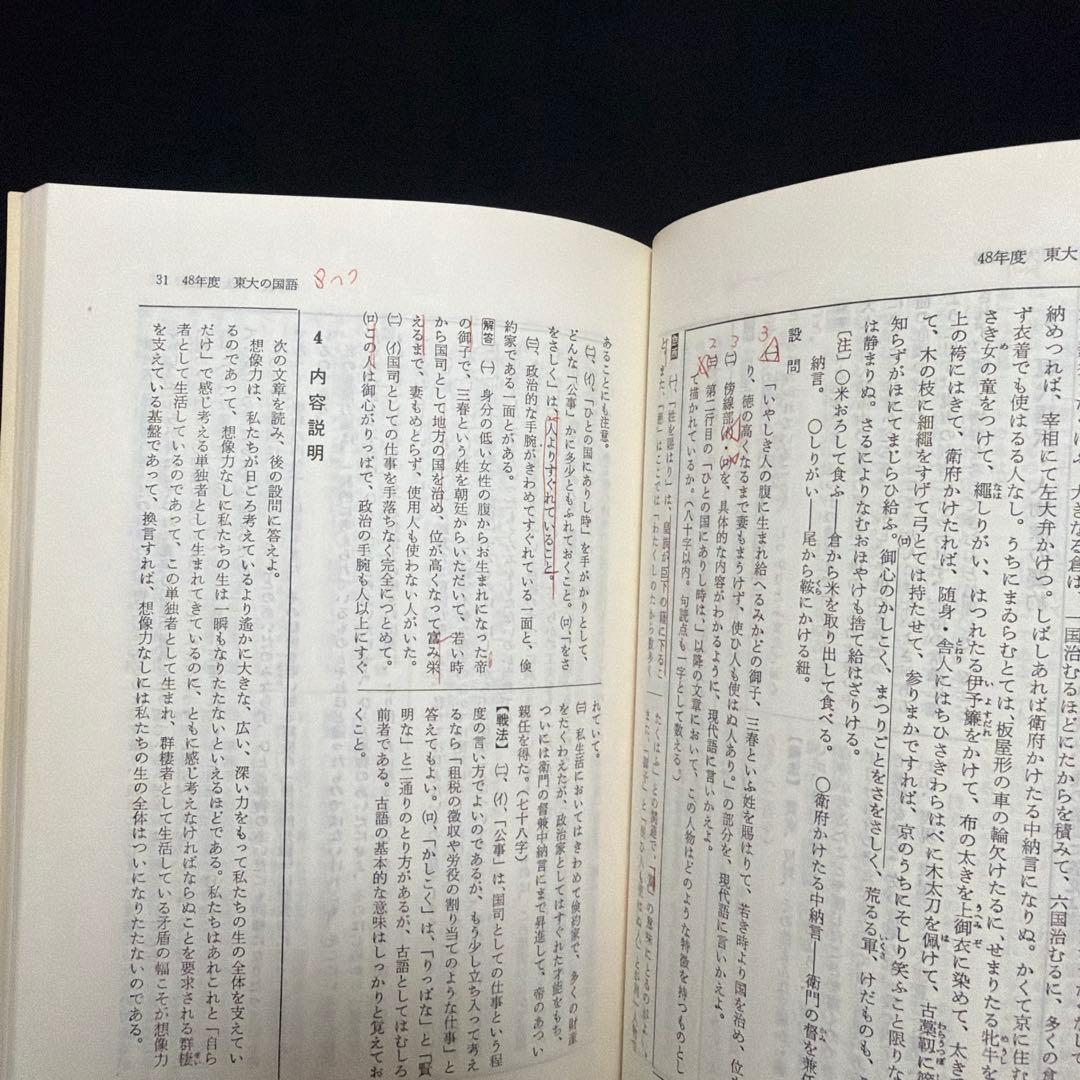 48年度 東大
納めつれば、宰相にて左大弁かけつ。しばしあれば衛府かけたる中納言になりぬ。かくて京に住む
ず衣着でも使はる人なし。うちにまゐらむとては、板屋形の車の輪欠けたるに、せまりたる牝牛を
さき女の童をつけて、繩しりがい、はつれたる伊予簾をかけて、布の太きを上御衣に染めて、太き
上の袴にはきて、衛府かけたれば、随身・舎人にはちひさきわらはべに木太刀を佩けて、古藁靫に
て、木の枝に細繩をすげて弓とては持たせて、参りまかですれば、京のうちにそしり笑ふこと限りな
知らずがほにてまじらひ給ふ。御心のかしこく、まつりごとをさをさしく、荒るる軍、けだものも、
は静まりぬ。さるによりなむおほやけも捨て給はざりける。
〔注〕〇米おろして食ふ――倉から米を取り出して食べる。 〇衛府かけたる中納言――衛門の督を兼任
納言。 〇しりがい――尾から鞍にかける紐。
設問
㈠ 「いやしき人の腹に生まれ給へるみかどの御子、三春といふ姓を賜はりて、若き時より国を治め、位
り、徳の高くなるまで妻もまうけず、使ひ人も使はぬ人あり。」の部分を、現代語に言いかえよ。
㈡ 傍線部(イ)・(ロ)を、具体的な内容がわかるように、現代語に言いかえよ。
㈢ 第二行目の「ひとの国にありし時は、」以降の文章において、この人物はどのような特徴を持つものとし
て描かれているか。(八十字以内。句読点も一字として数える。)
31 48年度 東大の国語
あることにも注意。
㈡、(イ)、「ひとの国にありし時」を手がかりとして、
どんな「公事」かに多少ともふれておくこと。(ロ)、「をさ
をさしく」は、「人よりすぐれていること。
㈢、政治的な手腕がきわめてすぐれている一面と、倹
約家である一面とがある。
解答 ㈠ 身分の低い女性の腹からお生まれになった帝
の御子で、三春という姓を朝廷からいただいて、若い時
から国司として地方の国を治め、位が高くなって富み栄
えるまで、妻もめとらず、使用人も使わない人がいた。
㈡ (イ)国司としての仕事を手落ちなく完全につとめて。
(ロ)この人は御心がりっぱで、政治の手腕も人以上にすぐ
れていて。
㈢ 私生活においてはきわめて倹約家で、多くの財産
をたくわえたが、政治家としてはすぐれた才能をもち、
ついには衛門の督兼中納言にまで昇進して、帝のあつい
親任を得た。(七十八字)
【戦法】 ㈡、(イ)、「公事」は、国司としての仕事という程
度の言い方でよいのであるが、もう少し立ち入って考え
るなら「租税の徴収や労役の割り当てのような仕事」と
答えてもよい。(ロ)、「かしこく」は、「りっぱな」と「賢
明な」と二通りのとり方があるが、古語としてはむしろ
前者である。古語の基本的な意味はしっかりと覚えてお
くこと。
4 内容説明
次の文章を読み、後の設問に答えよ。
想像力は、私たちが日ごろ考えているより遙かに大きな、広い、深い力をもって私たちの生の全体を支えてい
るのであって、想像力なしに私たちの生は一瞬もなりたたないといえるほどである。私たちはあれこれと「自ら
だけ」で感じ考える単独者として生まれてきているのに、ともに感じ考えなければならぬことを要求される群棲
者として生活しているのであって、この単独者として生まれ、群棲者として生活している矛盾の幅こそが想像力
を支えている基盤であって、換言すれば、想像力なしには私たちの生の全体はついになりたたないのである。